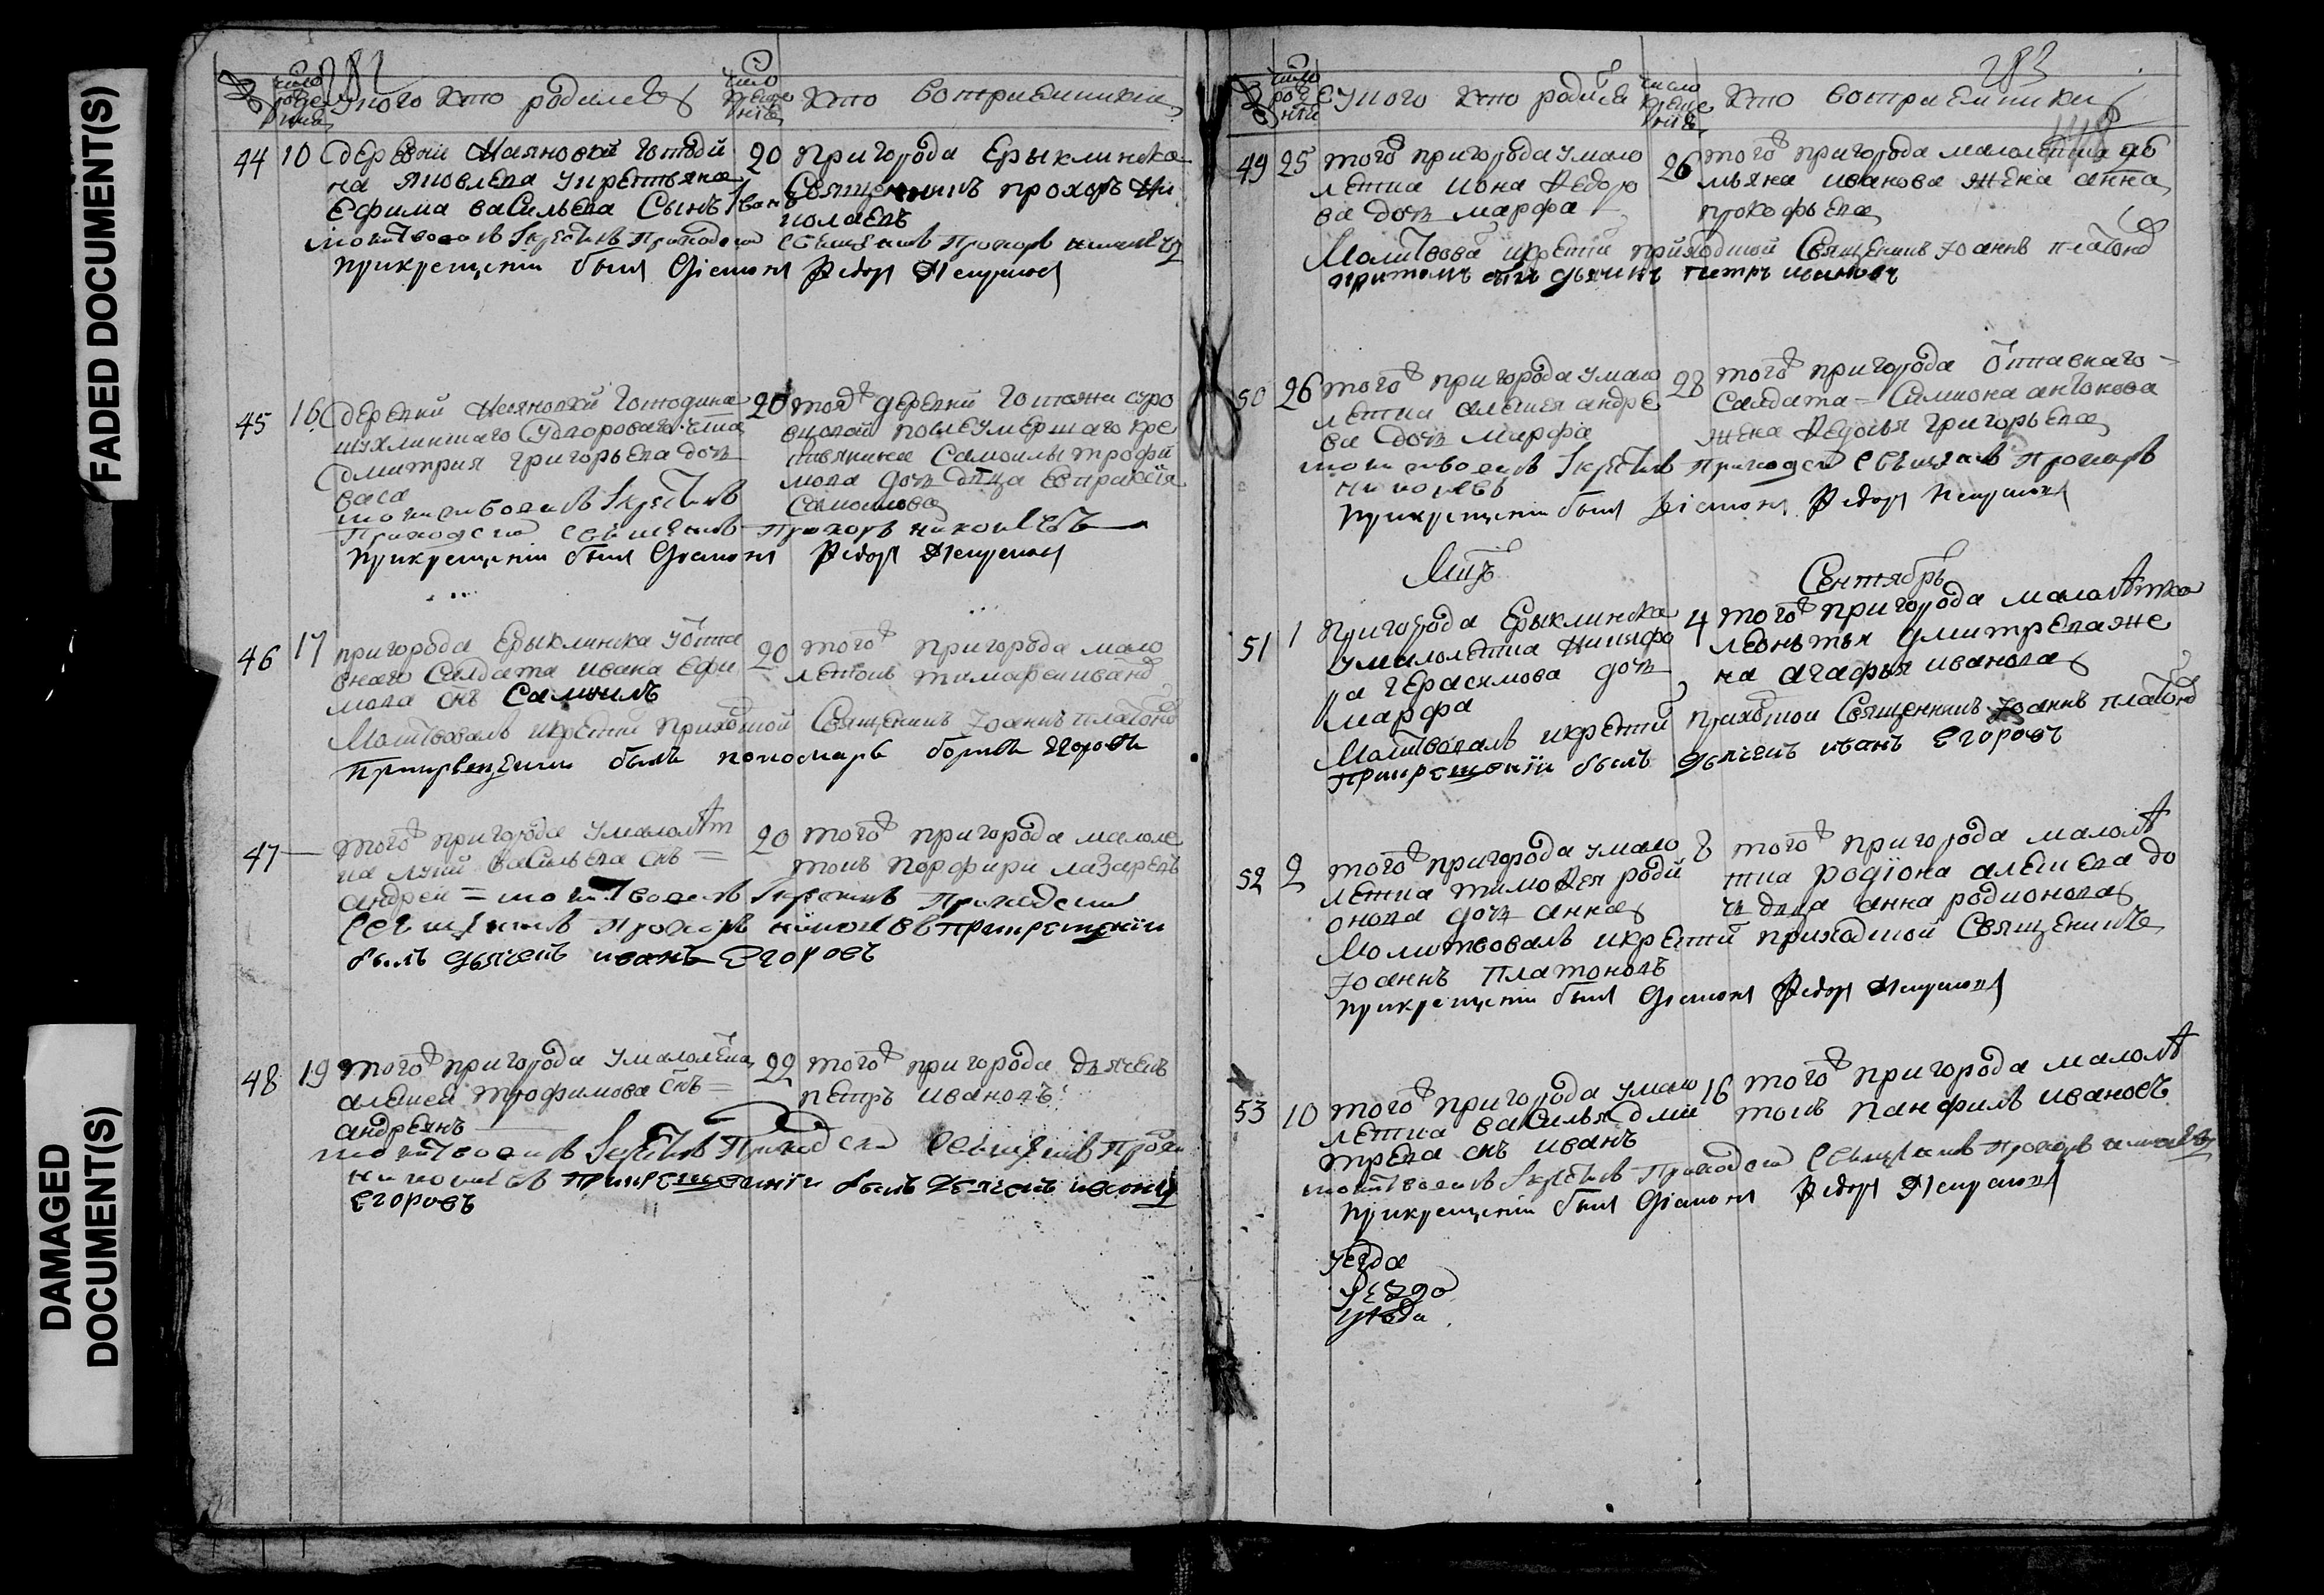 FADED DOCUMENT(S)
DAMAGED
DOCUMENT(S)
282
число рожде ния
У кого кто родился
число креще ния
Кто восприемники
44 10 деревни Маяновой господи
на яковлева у крестьяна
Ефима васильева Сынъ Иван
20 пригорода Ерыклинска
Священникъ прохоръ ни
колаевъ
молитвовалъ Iкрестилъ Приходской свещеникъ Прохоръ николаевъ
прикрещенiи былъ Дiяконъ Федоръ
45 16 деревни Маяновой господина
дмитрия григорьева дочь
васа
20 тояж деревни госпожи суро
вцовой после умершаго кре
стьянина Самоилы трофи
мова дочь девица евпраксiя
Самоилова
молитвовалъ Iкрестилъ
Приходской свещеникъ Прохоръ николаевъ
Прикрещенiи былъ Дiяконъ Федоръ
46 17 пригорода Ерыклинска у отста
внаго Салдата ивана ефи
мова снъ Самоилъ
20 того пригорода мало
летокъ тимофеи иванов
Молитвовалъ икрестил приходской Священикъ Iоаннъ платонов
Прикрещении былъ пономарь борисъ Егоровъ
47 того пригорода у малолѣт
ка луки васильева снъ =
андреи = молитвовалъ Iкрестилъ Приходской
свещеникъ Прохоръ николаевъ прикрещенiи
былъ дьячекъ иванъ Егоровъ
20 того пригорода малоле
токъ порфири лазаревъ
48 19 того пригорода у малолетка
алексея трофимова снъ =
андреянъ
22 того пригорода дьячекъ
петръ ивановъ
молитвовалъ Iкрестилъ Приходской свещеникъ Прохоръ
николаевъ прикрещенiи былъ дьячекъ иванъ
Егоровъ
283
число рожде нiя
У кого кто родился
число креще нiя
Кто восприемники
49 25 того пригорода у мало
летка иона Федоро
ва дочь марфа
26 того пригорода малолетка
мьяна иванова жена анна
прокофьева
Молитвовал икрестил приходской Священикъ Iоаннъ платонов
притомъ был дьячикъ петръ ивановъ
50 26 того пригорода у мало
летка алексея андре
ева дочь марфа
28 того пригорода отставнаго
Салдата Симиона антонова
жена Федосья григорьева
молитвовалъ Iкрестилъ Приходской свещеникъ Прохоръ
николаевъ
Прикрещенiи былъ Дiяконъ Федоръ
Мцъ Сентябрь
51 1 Пригорода Ерыклинска
у малолетка Никифо
ра герасимова дочь
марфа
4 того пригорода малолѣтка
леонътья дмитрева же
на агафья иванова
Молитвовалъ икрестил приходской Священникъ Iоаннъ платонов
прикрещенiи былъ дьячекъ иванъ Егоровъ
52 2 того пригорода у мало
летка тимофея роди
онова дочь анна
8 того пригорода малолѣ
тка родiона алексеева до
чь двца анна родионова
Молитвовалъ икрестил приходской Священикъ
Iоаннъ Платоновъ
прикрещенiи былъ Дiяконъ Федоръ
53 10 того пригорода у мало
летка василья дми
трева снъ иванъ
16 того пригорода малолѣ
токъ панфилъ ивановъ
молитвовалъ Iкрестилъ Приходской свещеникъ Прохоръ николаевъ
прикрещенiи былъ Дiяконъ Федоръ